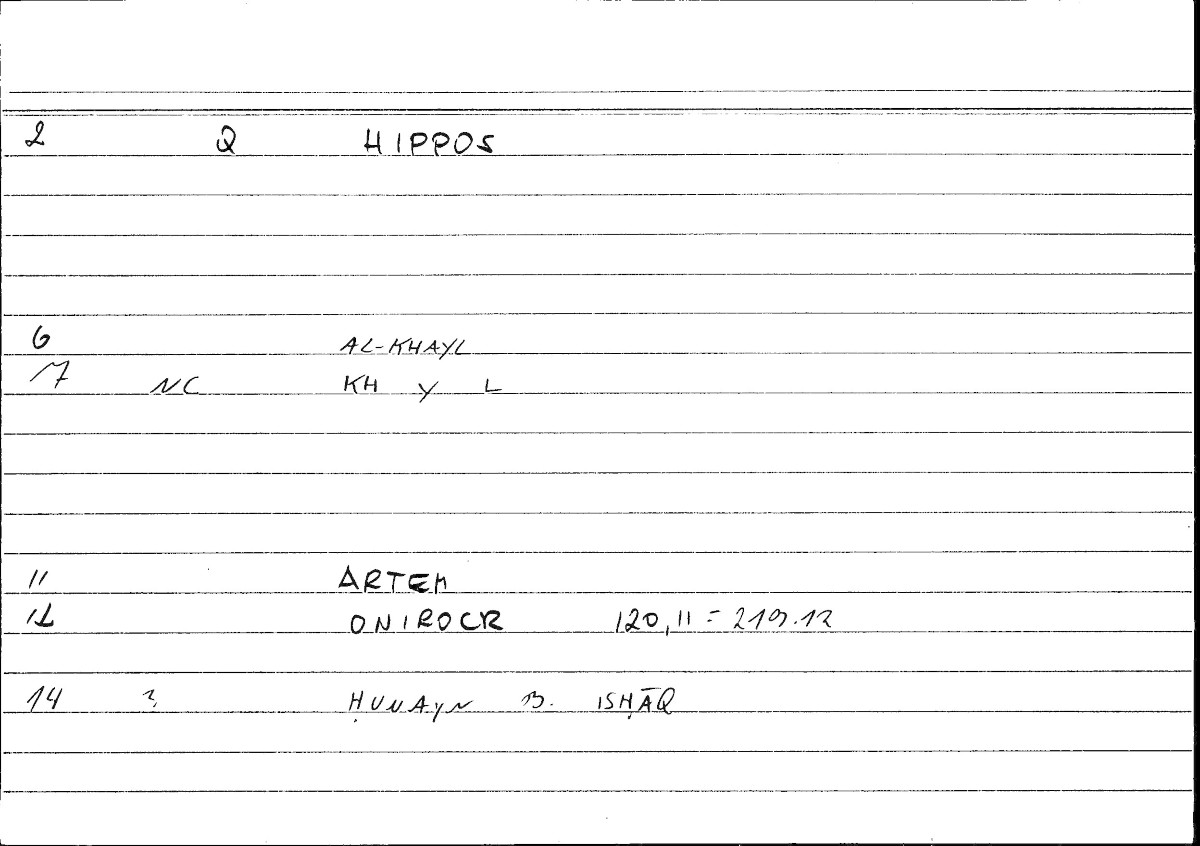 2 Q HIPPOS
6 AL-KHAYL
17 NC KH Y L
11 ARTEM
12 ONIROCR 120,11 = 219.12
14 ? ḤUNAYN B. ISḤĀQ